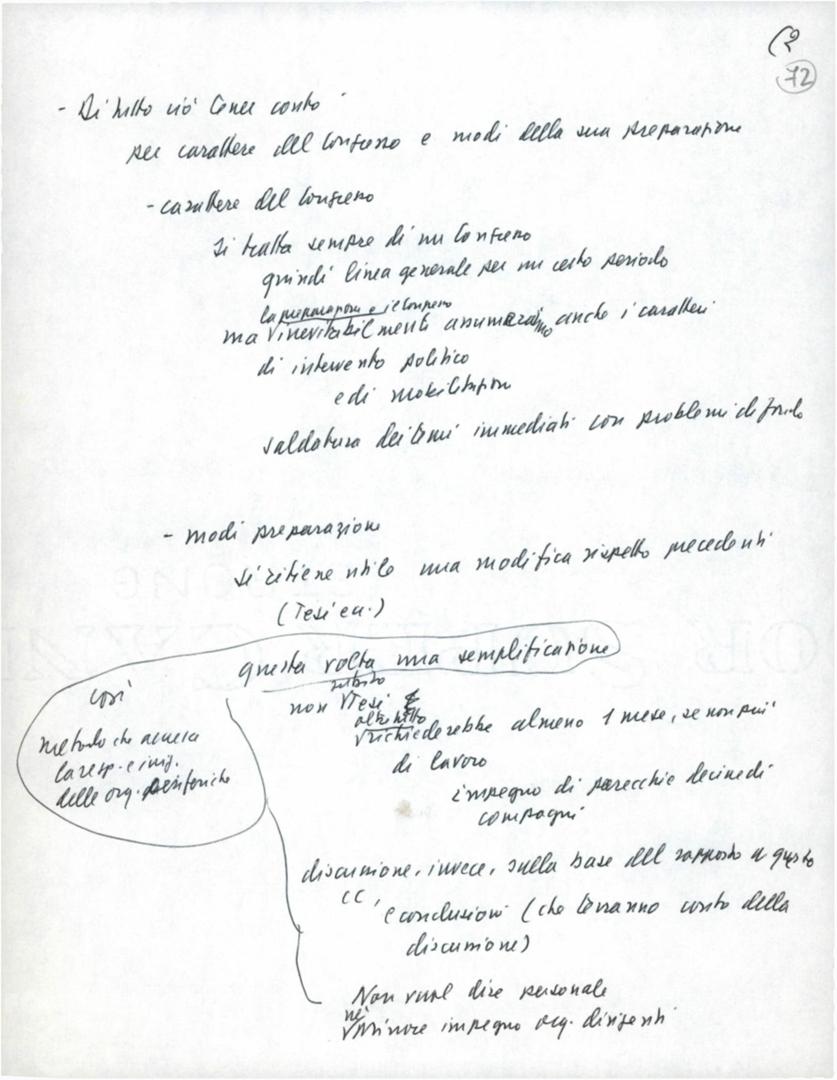 (2
72
- Di tutto ciò tener conto
per carattere del Congresso e modi della sua preparazione
- carattere del Congresso
Si tratta sempre di un Congresso
quindi linea generale per un certo periodo
la preparazione e il Congresso
ma inevitabilmente assumeranno anche i caratteri
di intervento politico
e di mobilitazione
saldatura dei temi immediati con problemi di fondo
- modi preparazione
si ritiene utile una modifica rispetto precedenti
(Tesi ecc.)
questa volta una semplificazione
così
metodo che accresca
la resp. e iniz.
delle org. periferiche
subito
non Tesi
oltretutto
richiederebbe almeno 1 mese, se non più
di lavoro
impegno di parecchie decine di
compagni
discussione, invece, sulla base del rapporto a questo
CC,
e conclusioni (che terranno conto della
discussione)
Non vuol dire personale
nè
minore impegno org. dirigenti